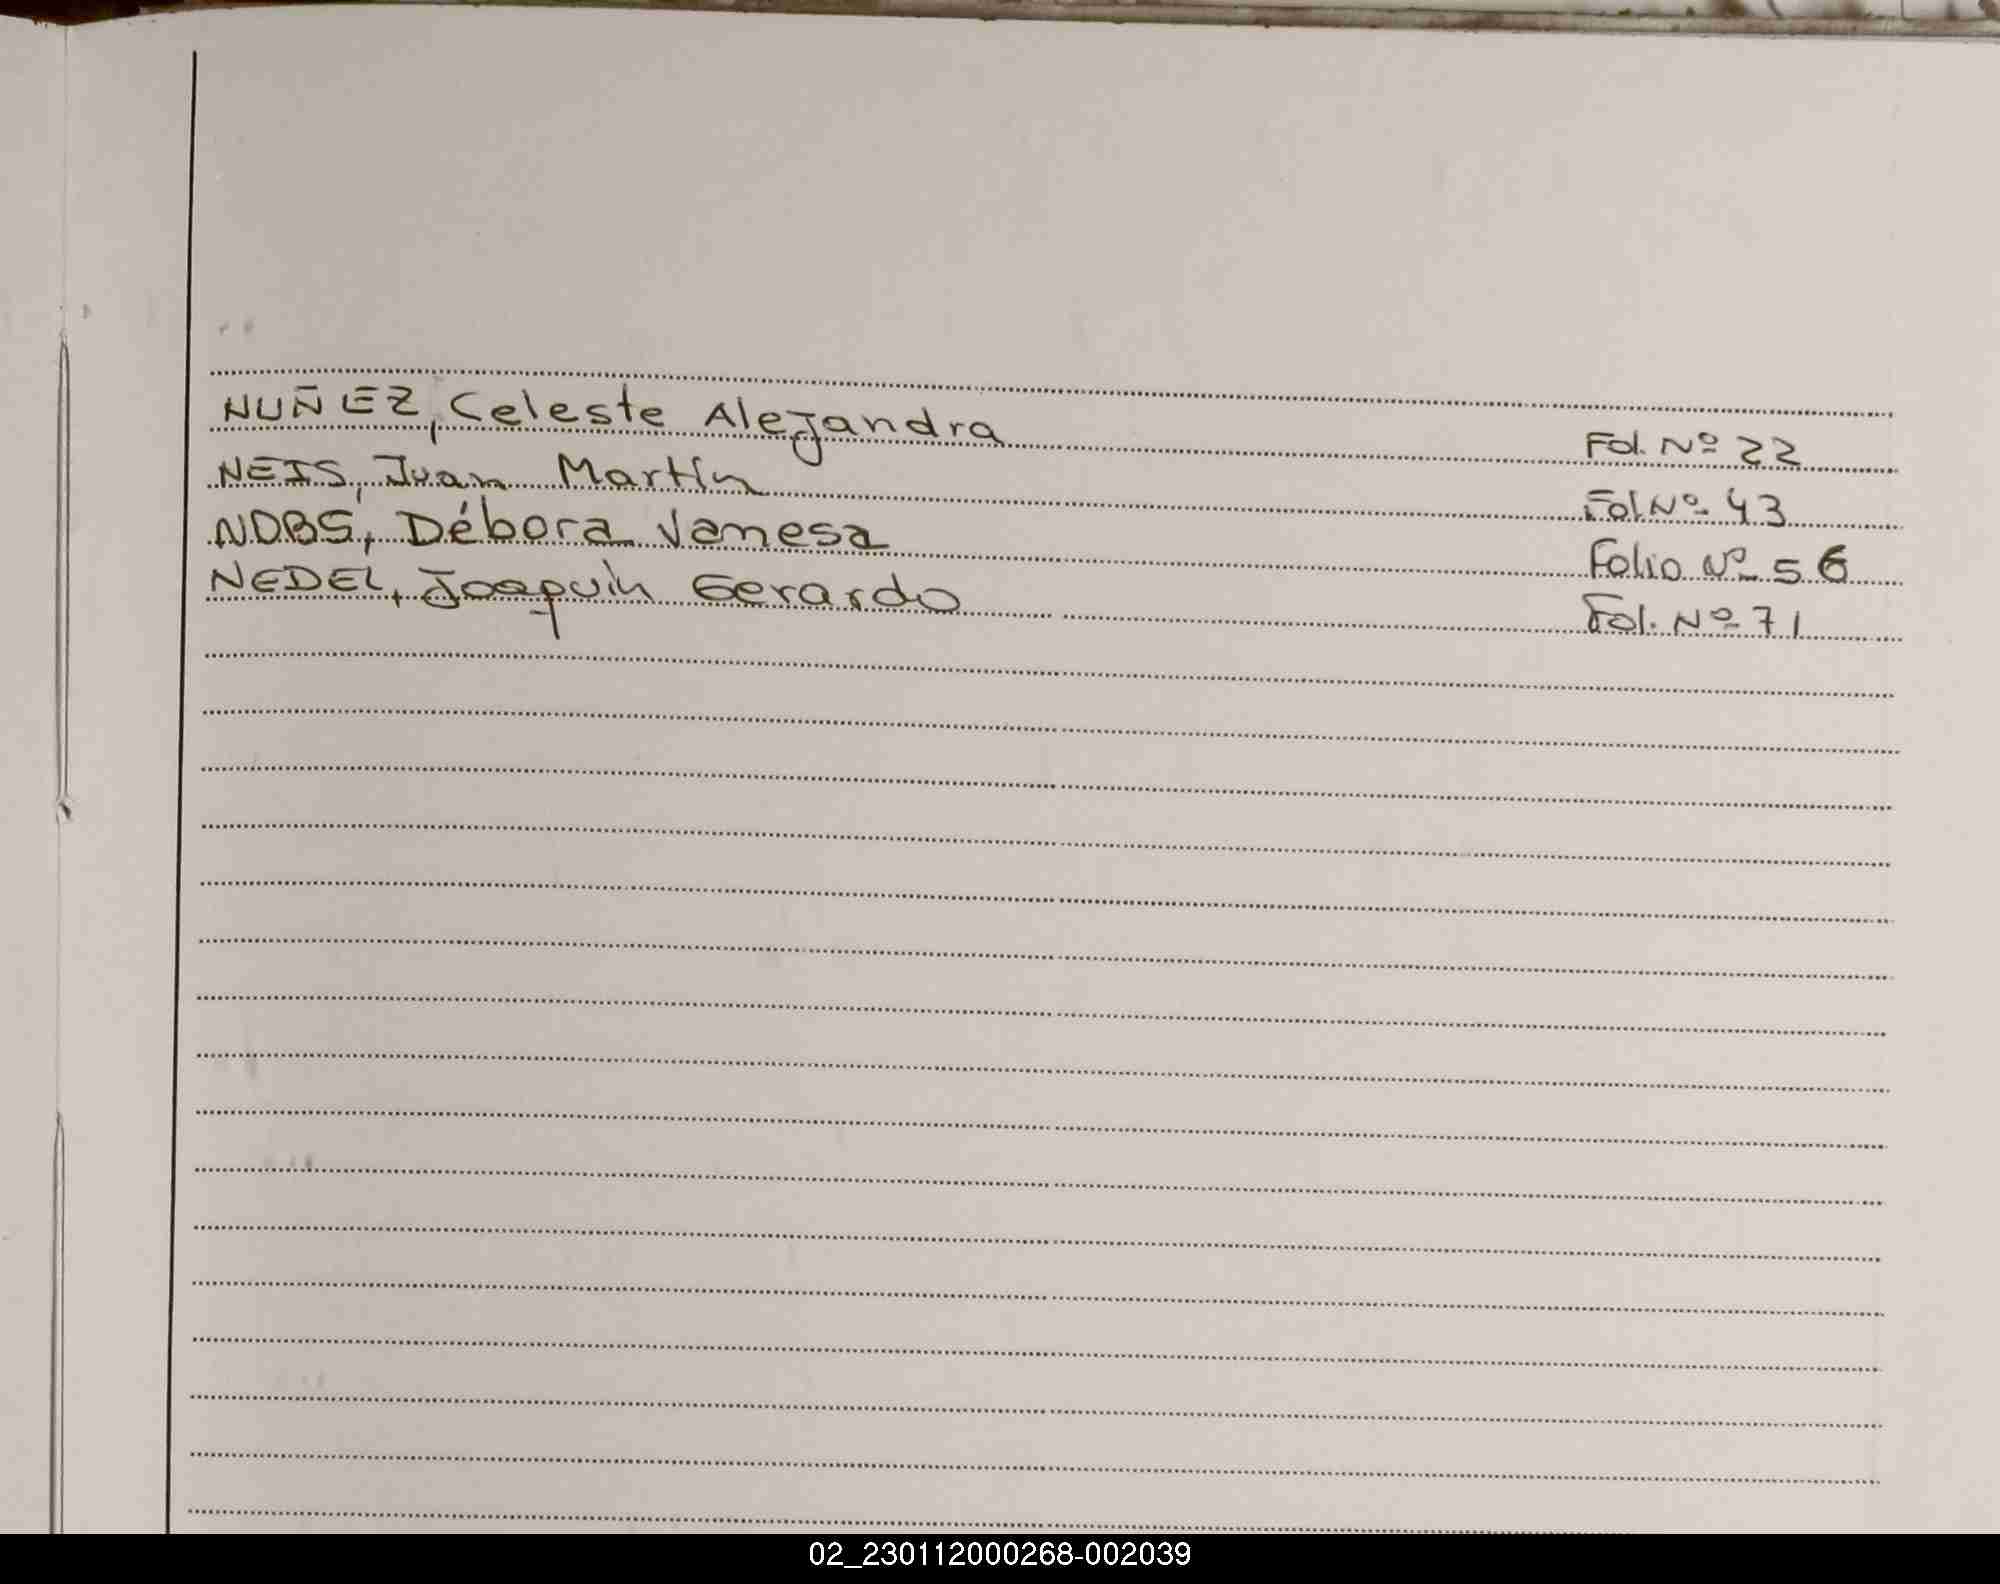 NUÑEZ, Celeste Alejandra Fol. Nº 22
NEIS, Juan Martín Fol Nº 43
NOBS, Débora Vanesa Folio Nº 56
NEDEL, Joaquín Gerardo Fol. Nº 71
02_230112000268-002039